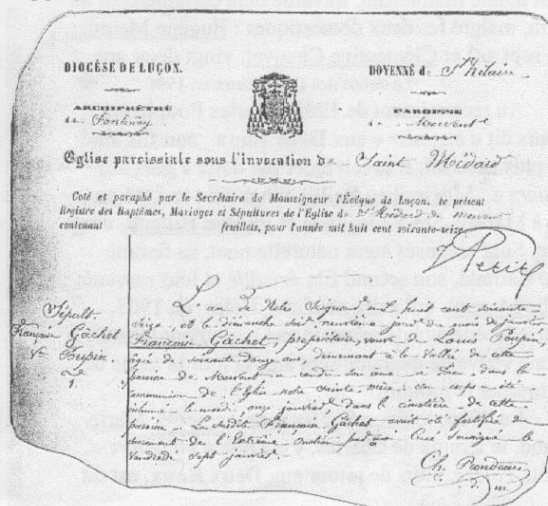 DIOCÈSE DE LUÇON.
DOYENNÉ de St Hilaire
ARCHIPRÊTRÉ
de Fontenay
PAROISSE
Mervent
Eglise paroissiale sous l'invocation de Saint Médard
Coté et paraphé par le Secrétaire de Monseigneur l'Evêque de Luçon, le présent
Registre des Baptêmes, Mariages et Sépultures de l'Eglise de St Médard de Mervent
contenant feuillets, pour l'année mil huit cent soixante-seize
Sépult.
Françoise Gâchet
Ve Poupin.
Le
1.
L'an de Notre Seigneur mil huit cent soixante
seize, et le dimanche neuvième jour du mois de janvier
Françoise Gâchet, propriétaire, veuve de Louis Poupin,
âgée de soixante douze ans, demeurant à la Vallée de cette
paroisse de Mervent a rendu son âme à Dieu, dans la
communion de l'Eglise notre Sainte mère : son corps a été
inhumé le mardi, onze janvier, dans le cimetière de cette
paroisse. La susdite Françoise Gâchet avait été fortifiée du
sacrement de l'Extrême-Onction par curé soussigné le
vendredi sept janvier.
Ch.